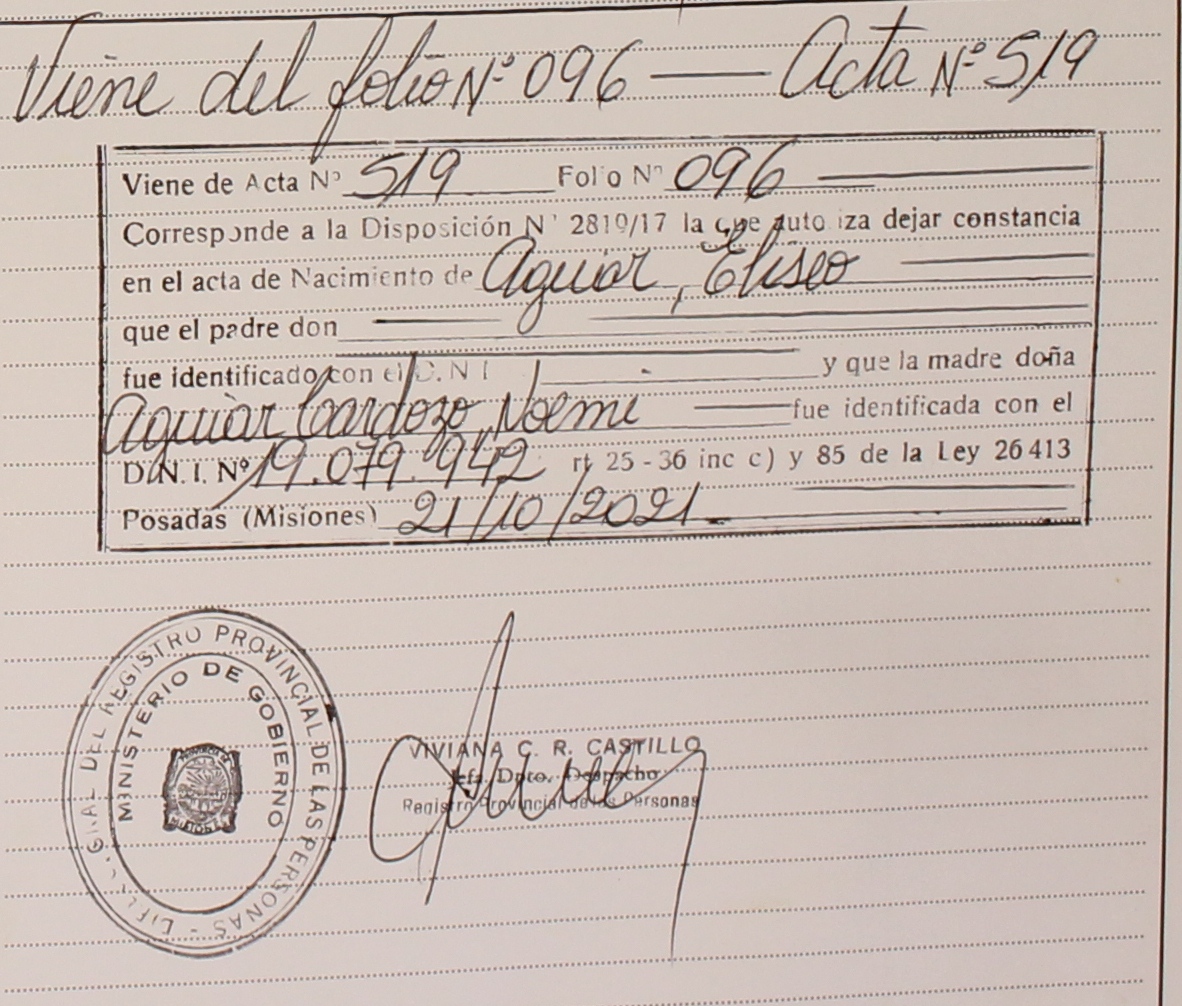 Viene del folio Nº 096 — Acta Nº 519
Viene de Acta Nº 519 Folio Nº 096
Corresponde a la Disposición Nº 2819/17 la que autoriza dejar constancia
en el acta de Nacimiento de Aguiar, Eliseo
que el padre don
fue identificado con el D.N.I. y que la madre doña
Aguiar Cardozo, Noemi fue identificada con el
D.N.I. Nº 19.079.942 rt 25-36 inc c) y 85 de la Ley 26413
Posadas (Misiones) 21/10/2021
GRAL DEL REGISTRO PROVINCIAL DE LAS PERSONAS
MINISTERIO DE GOBIERNO
VIVIANA C. R. CASTILLO
Jefa. Dpto. Despacho
Registro Provincial de las Personas